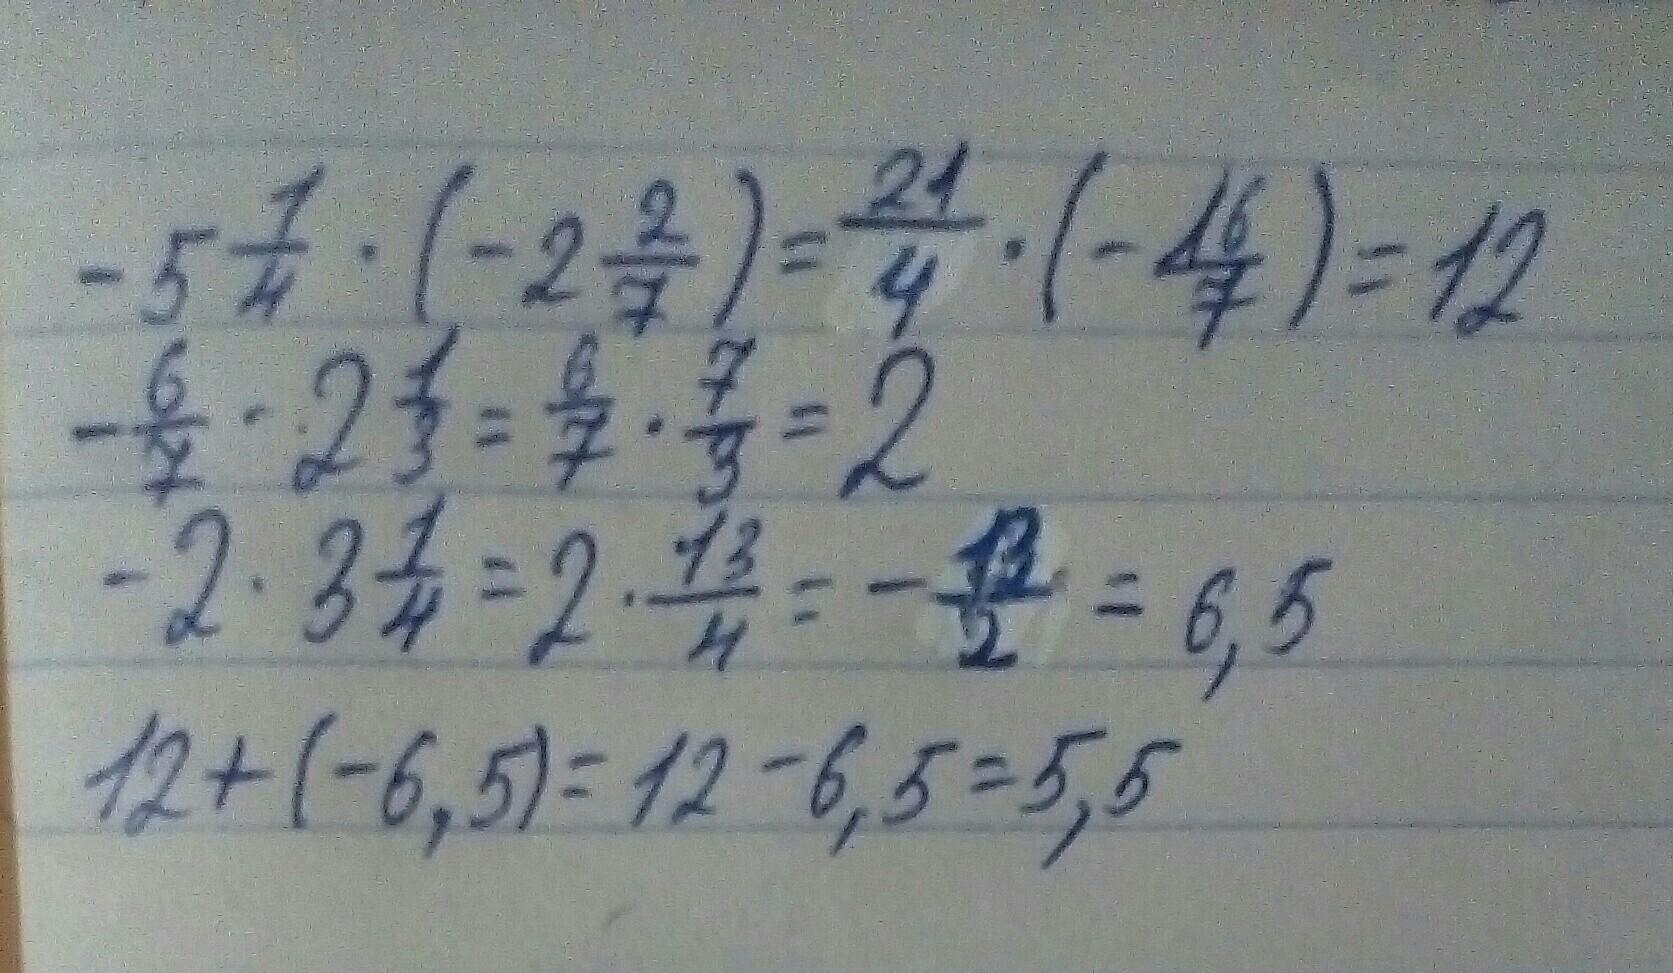 -5 1/4 · (-2 2/7) = 21/4 · (-16/7) = 12
-6/7 · 2 1/3 = 6/7 · 7/3 = 2
-2 · 3 1/4 = 2 · 13/4 = -13/2 = 6,5
12 + (-6,5) = 12 - 6,5 = 5,5